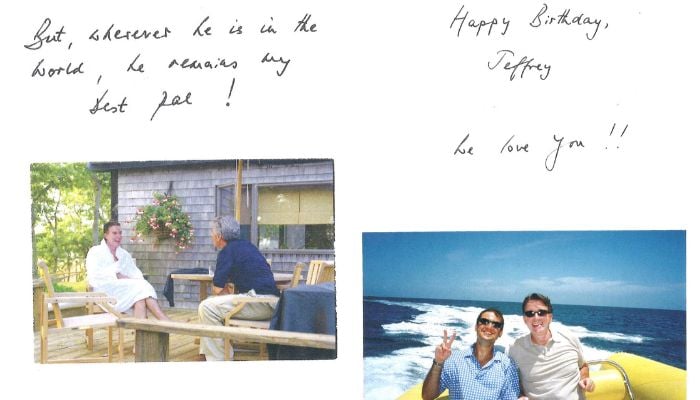 But, wherever he is in the
world, he remains my
best pal !
Happy Birthday,
Jeffrey
We love you !!